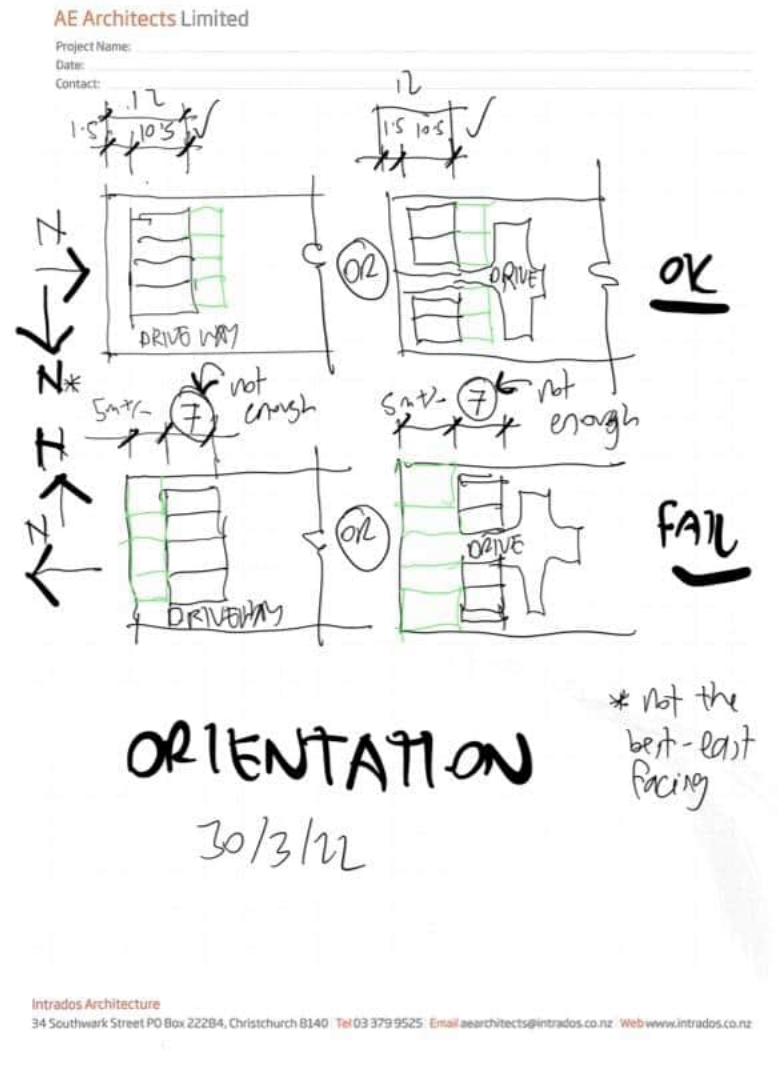 AE Architects Limited
Project Name:
Date:
Contact:
12
1.5 10.5
12
1.5 10.5
N
OR
DRIVE
OK
DRIVE WAY
N*
5m+/- 7 not enough
5m+/- 7 not enough
N
N
OR
DRIVE
FAIL
DRIVEWAY
* not the
best-east
facing
ORIENTATION
30/3/22
Intrados Architecture
34 Southwark Street PO Box 22284, Christchurch 8140 Tel 03 379 9525 Email aearchitects@intrados.co.nz Web www.intrados.co.nz